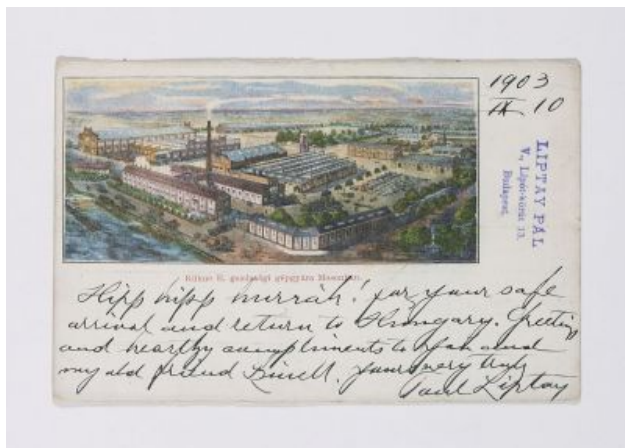 1903
IX 10
LIPTAY PÁL
V., Lipót-körút 13.
Budapest.
Kühne E. gazdasági gépgyára Mosonban.
Hipp hipp hurráh! for your safe
arrival and return to Hungary. Greeting
and hearty compliments to you and
my old friend yours very truly
Paul Liptay